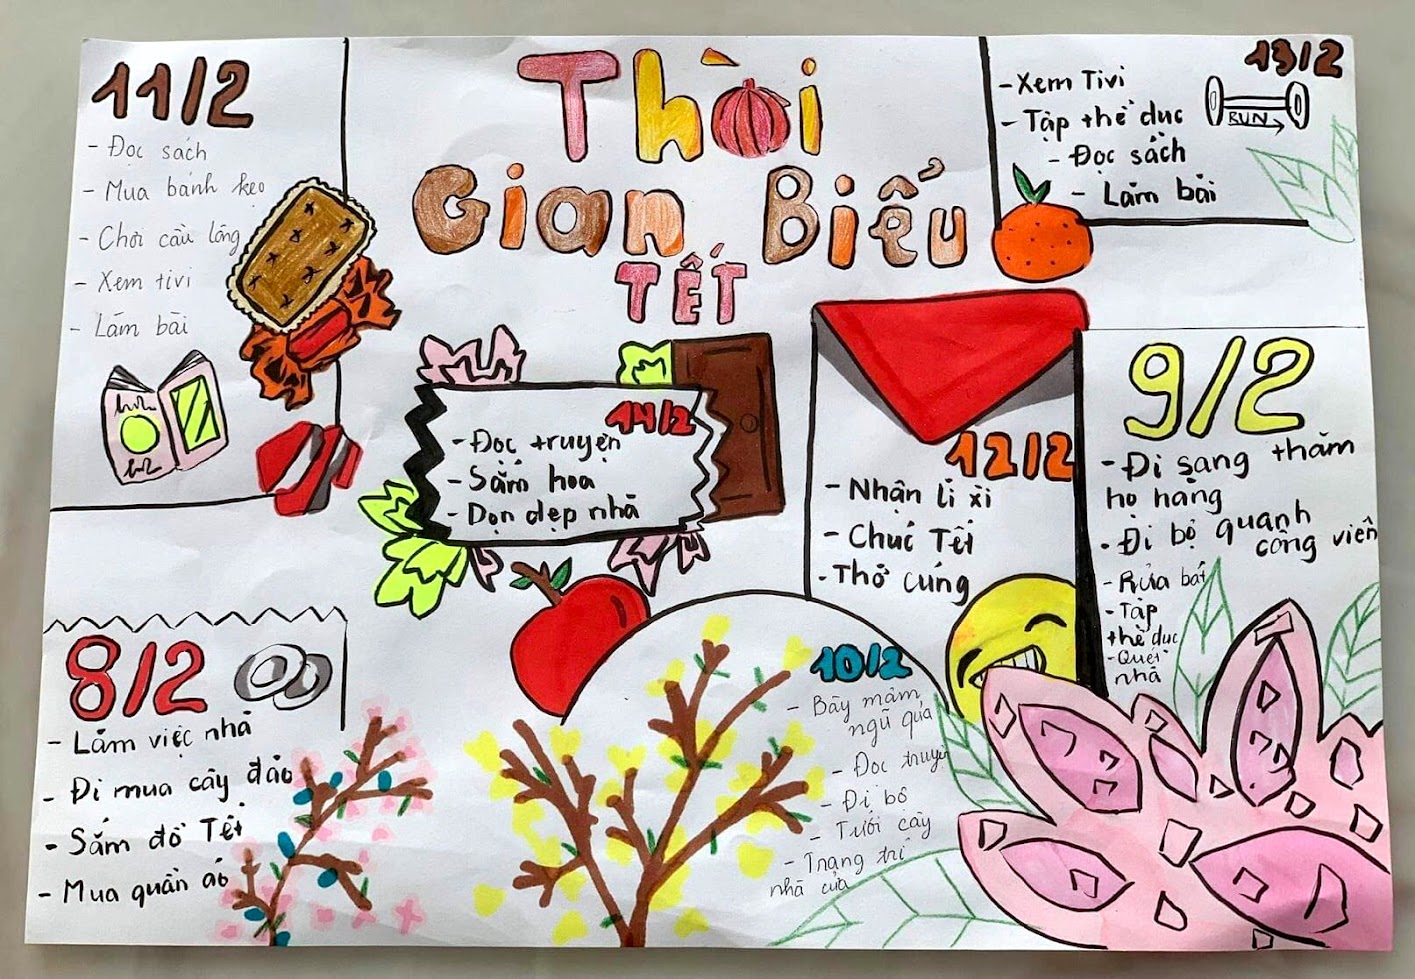 Thời
Gian Biểu
TẾT
11/2
- Đọc sách
- Mua bánh kẹo
- Chơi cầu lông
- Xem tivi
- Làm bài
13/2
- Xem Tivi
- Tập thể dục
- Đọc sách
- Làm bài
RUN
14/2
- Đọc truyện
- Sắm hoa
- Dọn dẹp nhà
12/2
- Nhận lì xì
- Chúc Tết
- Thờ cúng
9/2
- Đi sang thăm
họ hàng
- Đi bộ quanh
công viên
- Rửa bát
- Tập
thể dục
- Quét
nhà
8/2
- Làm việc nhà
- Đi mua cây đào
- Sắm đồ Tết
- Mua quần áo
10/2
- Bày mâm
ngũ quả
- Đọc truyện
- Đi bộ
- Tưới cây
- Trang trí
nhà cửa